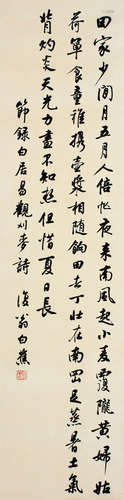 田家少閒月五月人倍忙夜來南風起小麥覆隴黃婦姑
荷簞食童稚攜壺漿相隨餉田去丁壯在南岡足蒸暑土氣
背灼炎天光力盡不知熱但惜夏日長
節錄白居易觀刈麥詩 復翁白蕉